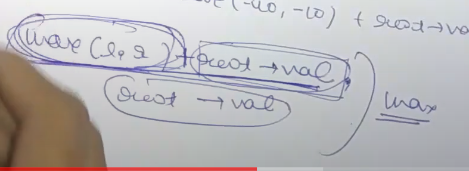 (-40, -10) + root→va
max (l, r) + root→val,
root → val
max